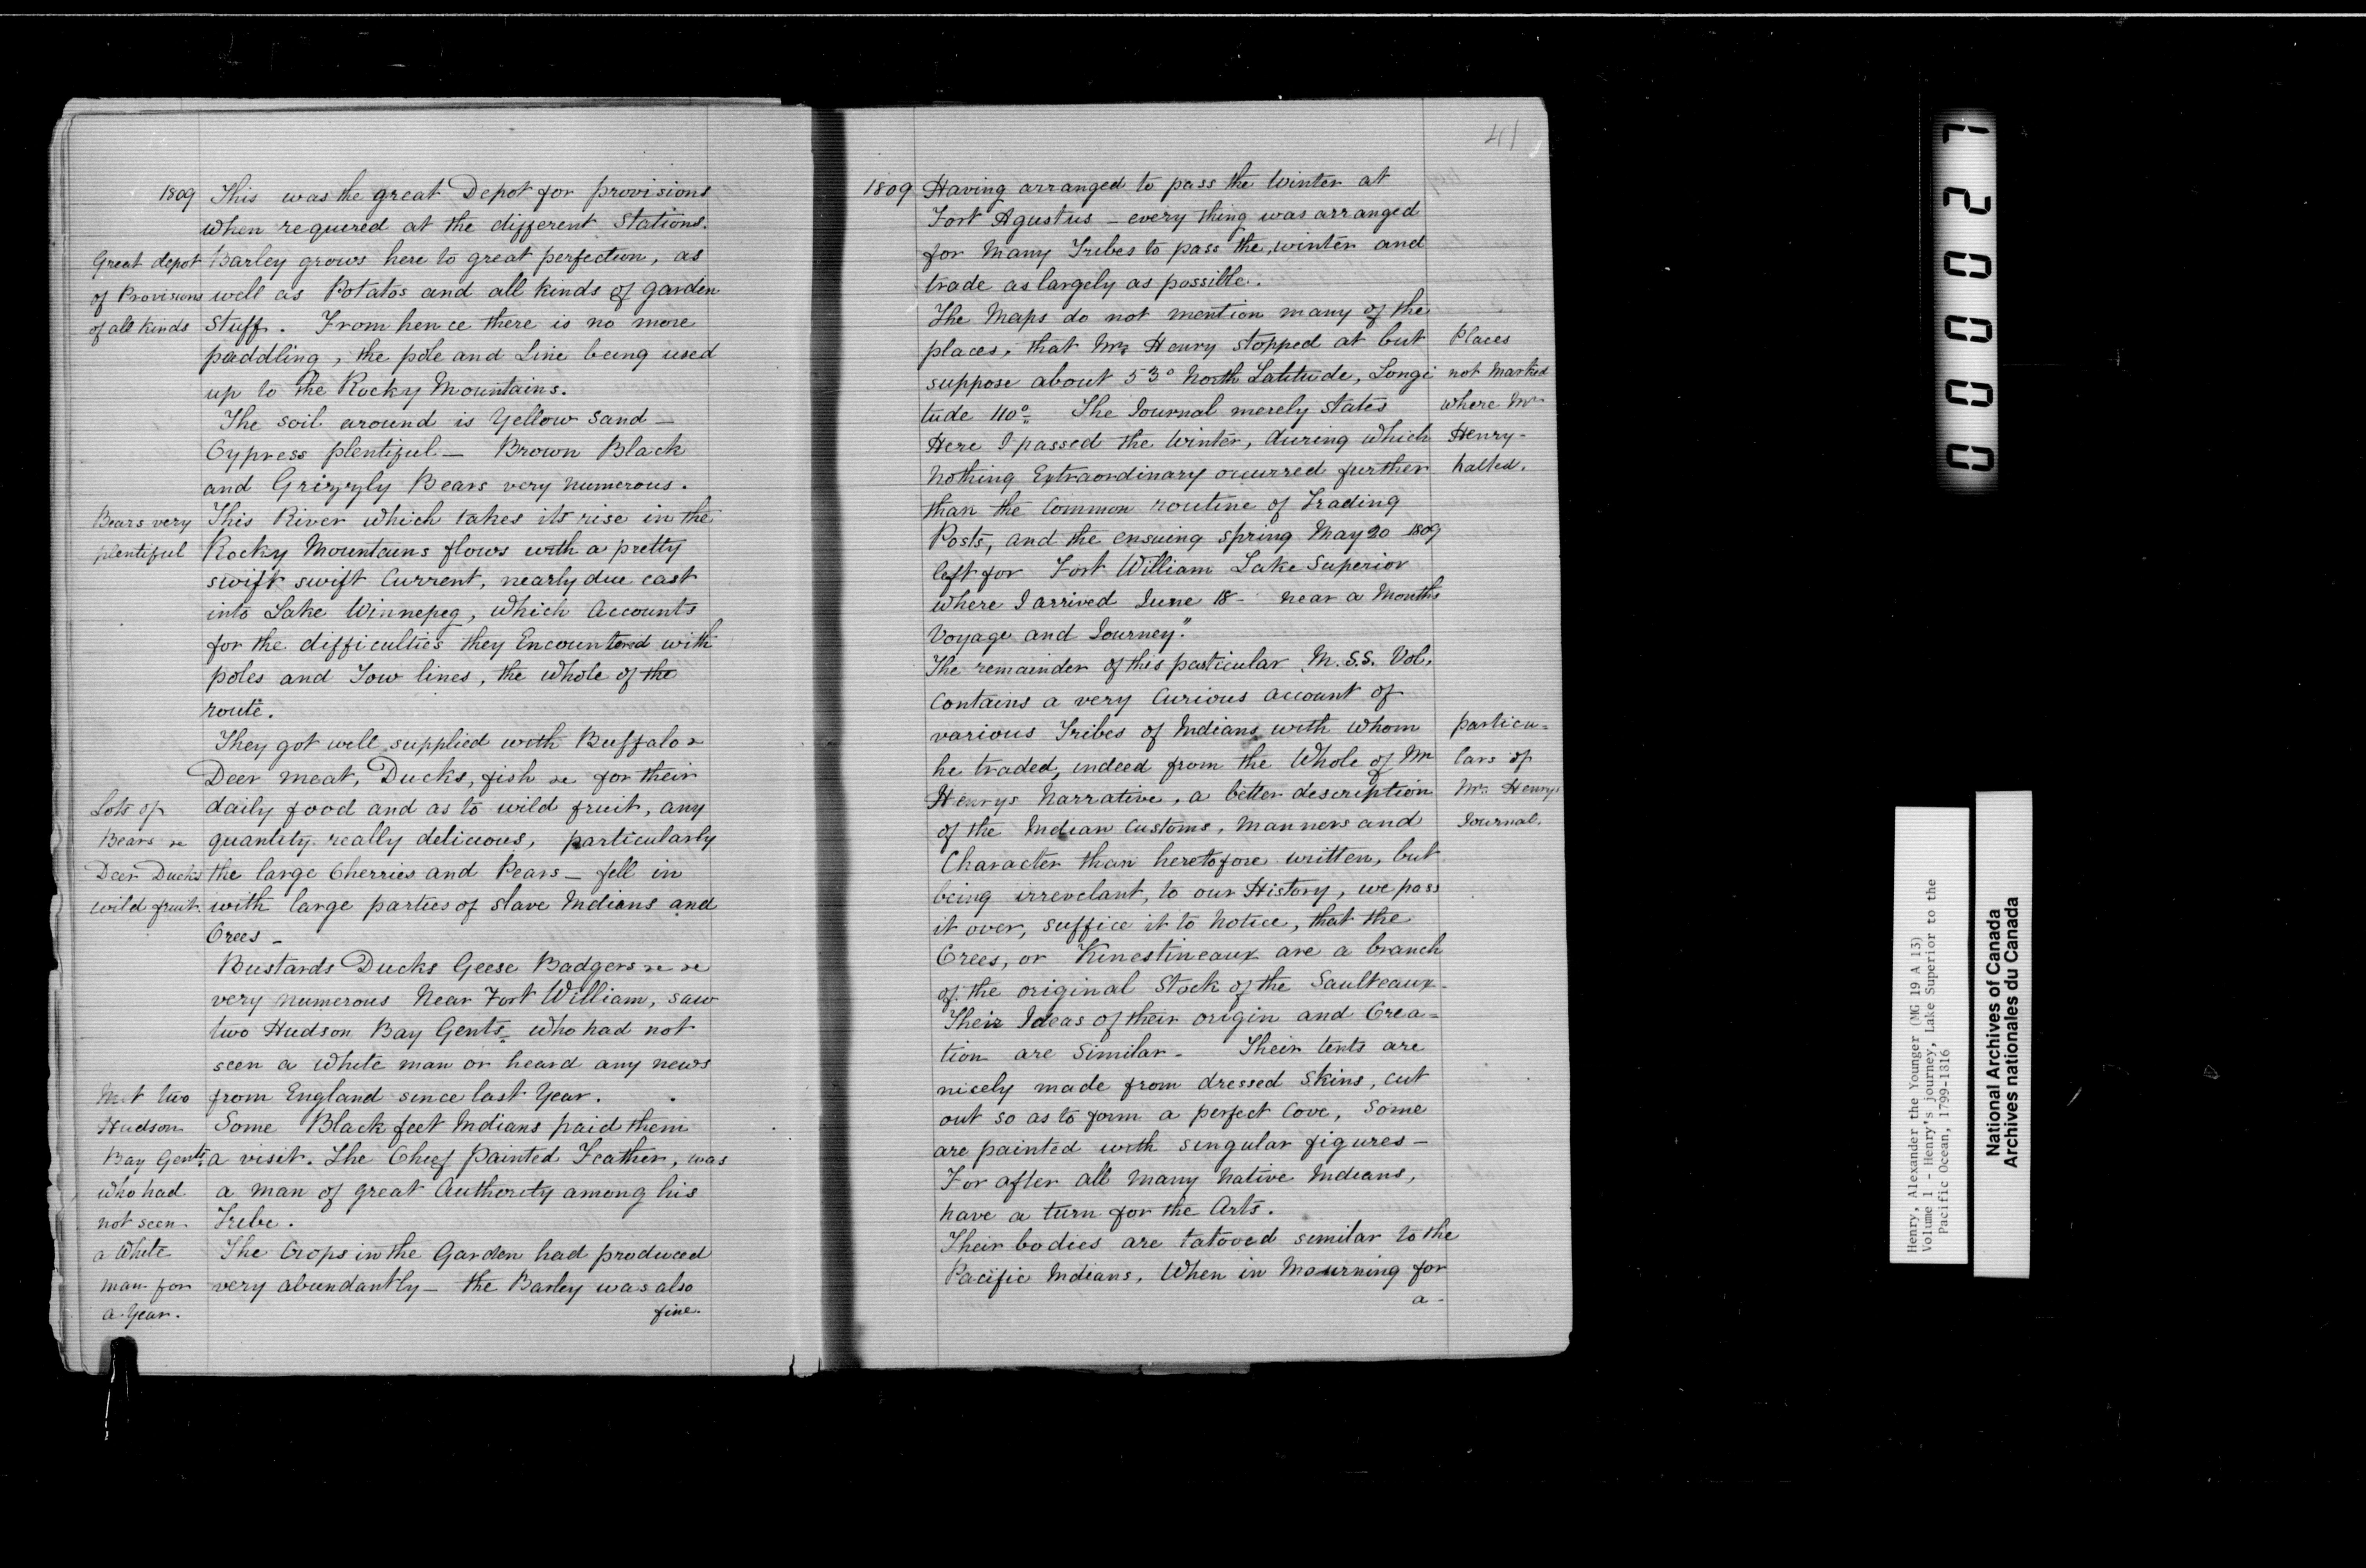 1809 This was the great Depot for provisions
when requered at the different Stations.
Great depot Barley grows here to great perfection, as
of Provisions well as Potatos and all kinds of garden
of all kinds Stuff. From hence there is no more
paddling, the pole and Line being used
up to the Rocky Mountains.
The soil around is Yellow Sand _
Cypress plentiful _ Brown Black
and Grizzyly Bears very numerous.
Bears very This River which takes its rise in the
plentiful Rocky Mountains flows with a pretty
swift swift Current, nearly due east
into Lake Winnepeg, which accounts
for the difficulties they Encountered with
poles and Tow lines, the whole of the
route.
They got well supplied with Buffalo &
Deer meat, Ducks, fish &c for their
Lots of daily food and as to wild fruit, any
Bears &c quantity really delicious, particularly
Deer Ducks the large Cherries and Pears _ fell in
wild fruit. with large parties of slave Indians and
Crees _
Bustards Ducks Geese Badgers &c &c
very numerous Near Fort William, saw
two Hudson Bay Gents. who had not
seen a white man or heard any news
Met two from England since last Year.
Hudson Some Black feet Indians paid them
Bay Gents. a visit. The Cheef Painted Feather, was
who had a man of great Authority among his
not seen Tribe.
a White The Crops in the Garden had produced
man for very abundantly _ the Barley was also
a Year. fine.
41
1809 Having arranged to pass the Winter at
Fort Agustus _ every thing was arranged
for Many Tribes to pass the winter and
trade as largely as possible.
The Maps do not mention many of the
places, that Mr. Henry stopped at but Places
suppose about 53° North Latitude, Longi not Marked
tude 110° The Journal merely states where Mr
Here I passed the Winter, during which Henry -
Nothing Extraordinary occurred further halted.
than the Common routine of Trading
Posts, and the ensuing spring May 20 1809
left for Fort William Lake Superior
where I arrived June 18 - Near a Months
Voyage and Journey."
The remainder of this particular M.S.S. Vol.
Contains a very Curious account of
various Tribes of Indians with whom particu=
he traded, indeed from the Whole of Mr lars of
Henrys Narrative, a better description Mr. Henrys
of the Indian Customs, Manners and Journal.
Character than heretofore written, but
being irrevelant, to our History, we pass
it over, suffice it to Notice, that the
Crees, or Kinestineaux are a branch
of the original Stock of the Saulteaux -
Their Ideas of their origin and Crea=
tion are Similar - Their tents are
nicely made from dressed Skins, cut
out so as to form a perfect Cove, Some
are painted with singular figures -
For after all Many Native Indians,
have a turn for the Arts.
Their bodies are tatooed similar to the
Pacific Indians, When in Mourning for
a -
000027
Henry, Alexander the Younger (MG 19 A 13)
Volume 1 - Henry's journey, Lake Superior to the
Pacific Ocean, 1799-1816
National Archives of Canada
Archives nationales du Canada